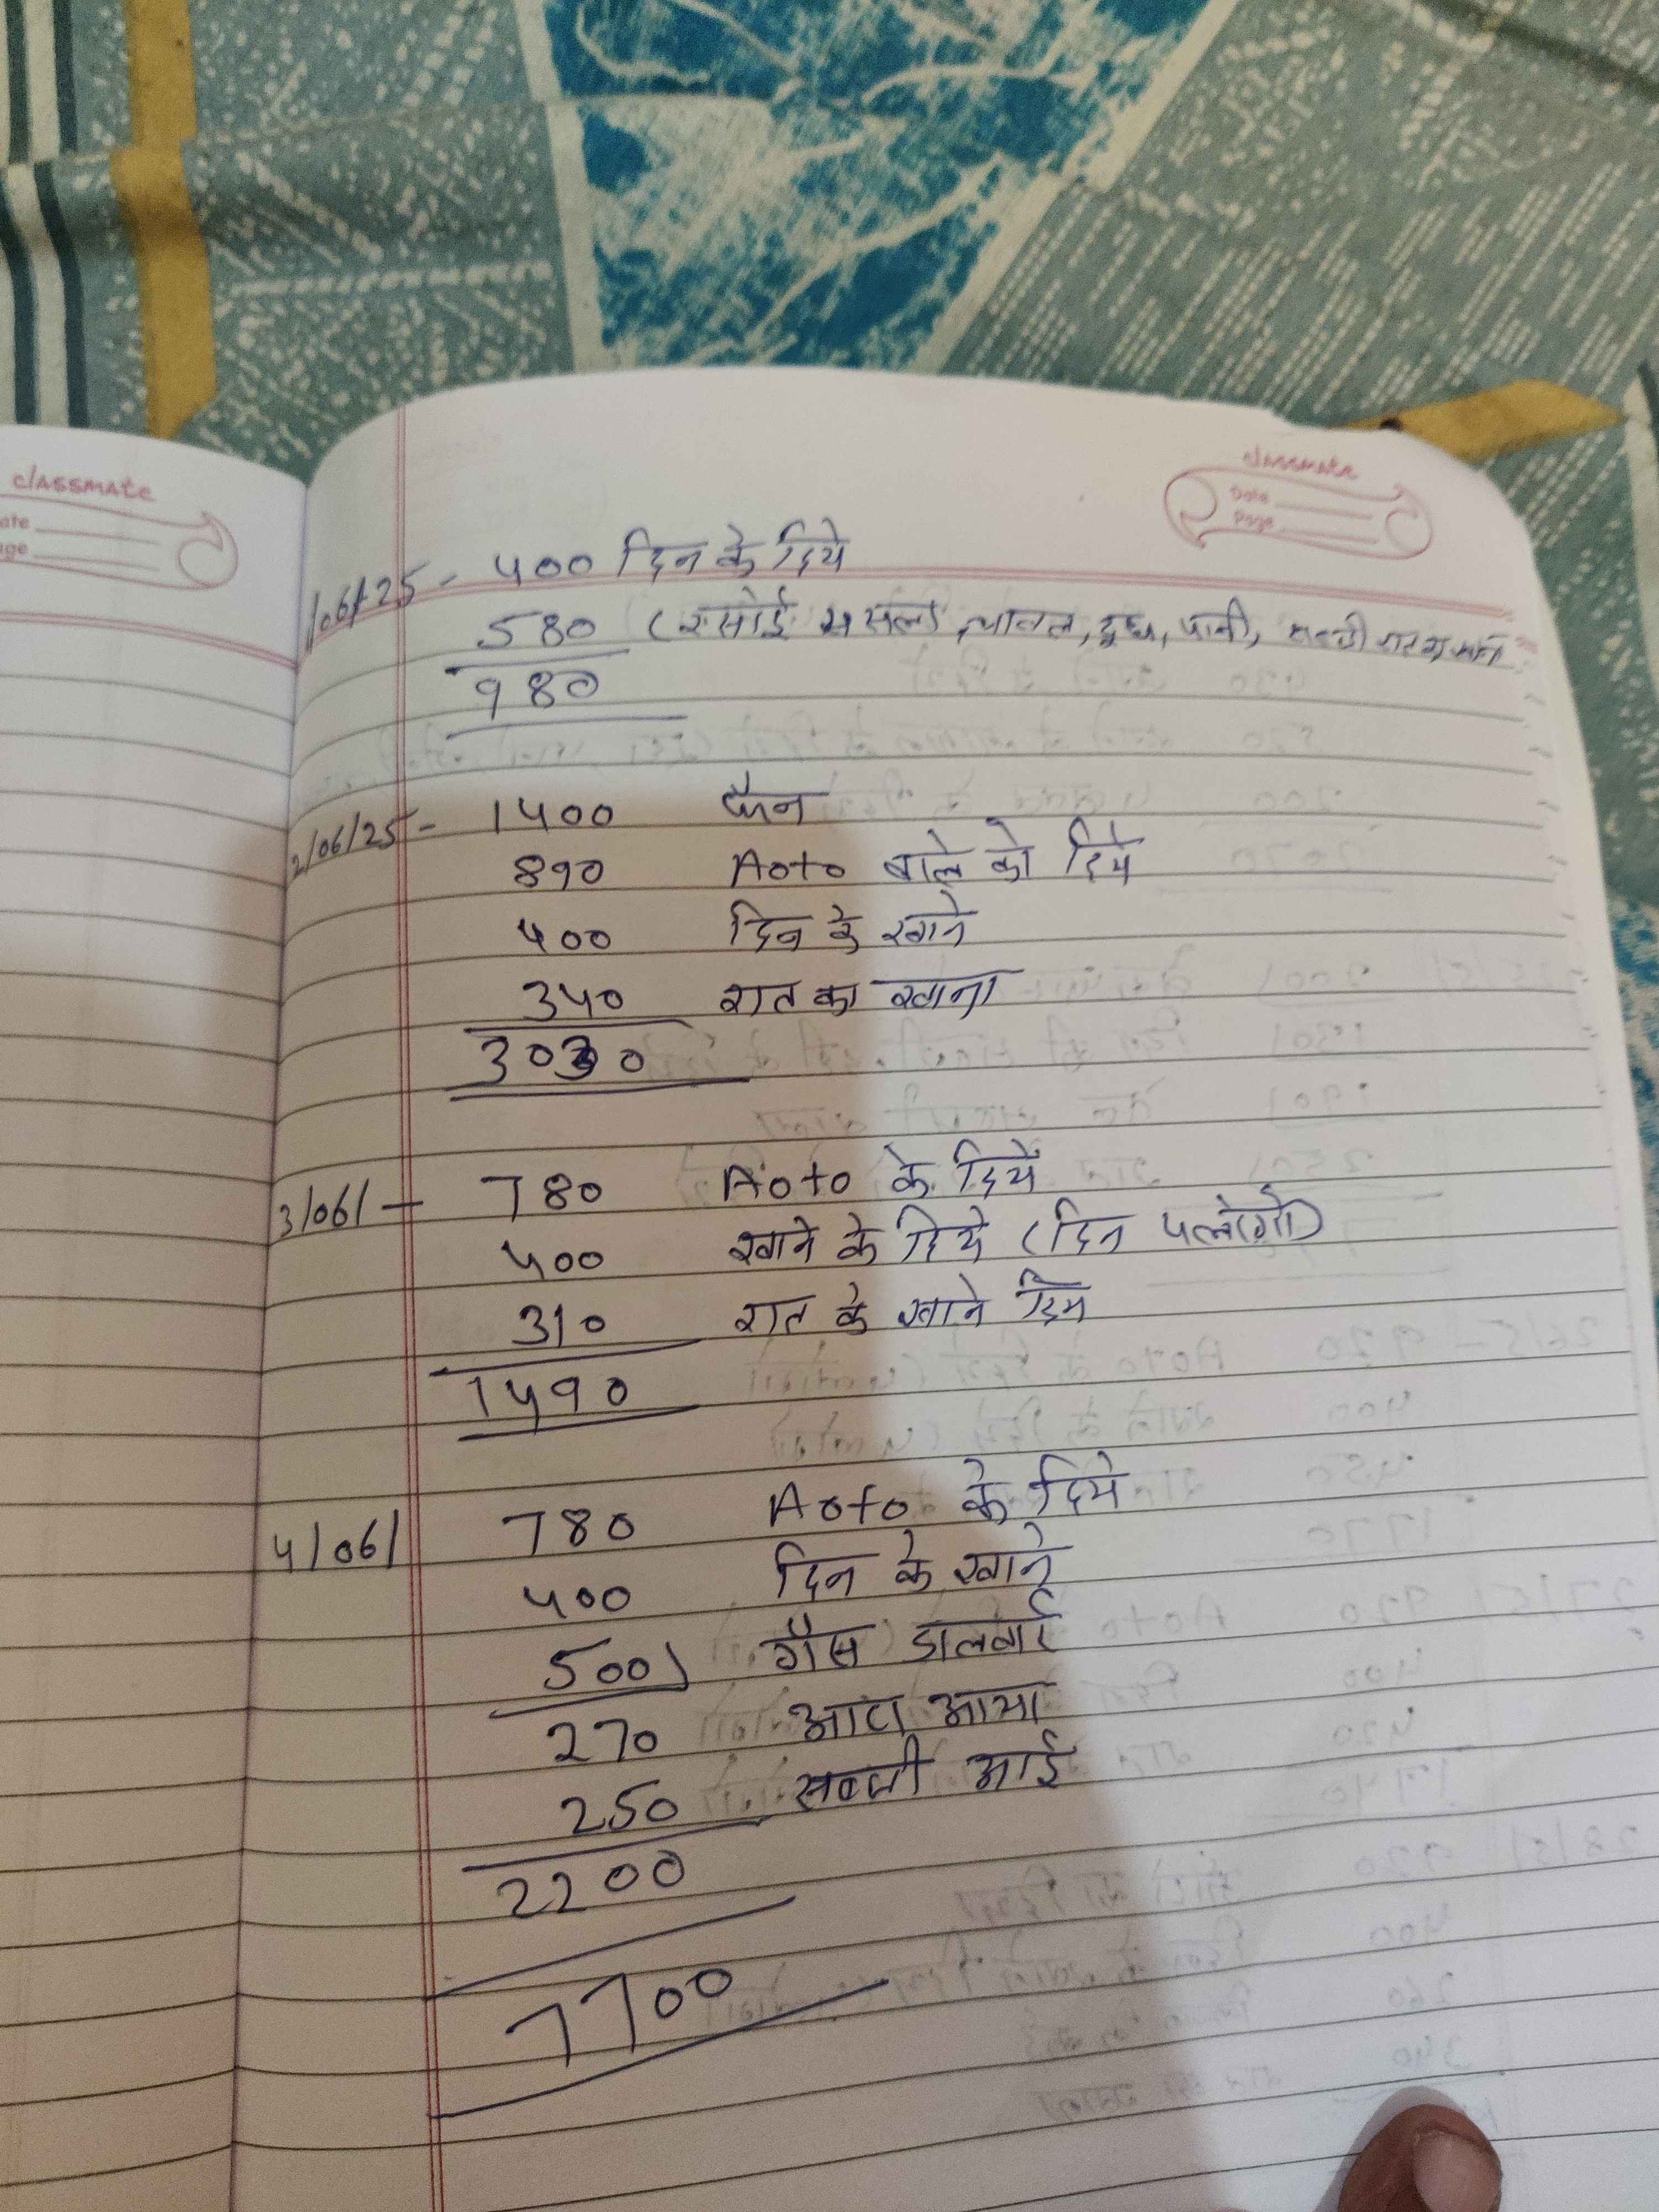 classmate
ate
age
classmate
Date
Page
1/06/25 - 400 दिन के दिये
580 (रसोई मसला, चावल, दूध, पानी,
980
2/06/25 - 1400 फैन
890 Aoto बाले को दिये
400 दिन के खाने
340 रात का खाना
3030
3/06/ - 780 Aoto के दिये
400 खाने के दिये (दिन 4 लोगो)
310 रात के खाने दिये
1490
4/06/ 780 Aoto के दिये
400 दिन के खाने
500) गैस डालवाई
270 आटा आया
250 सब्जी आई
2200
7700